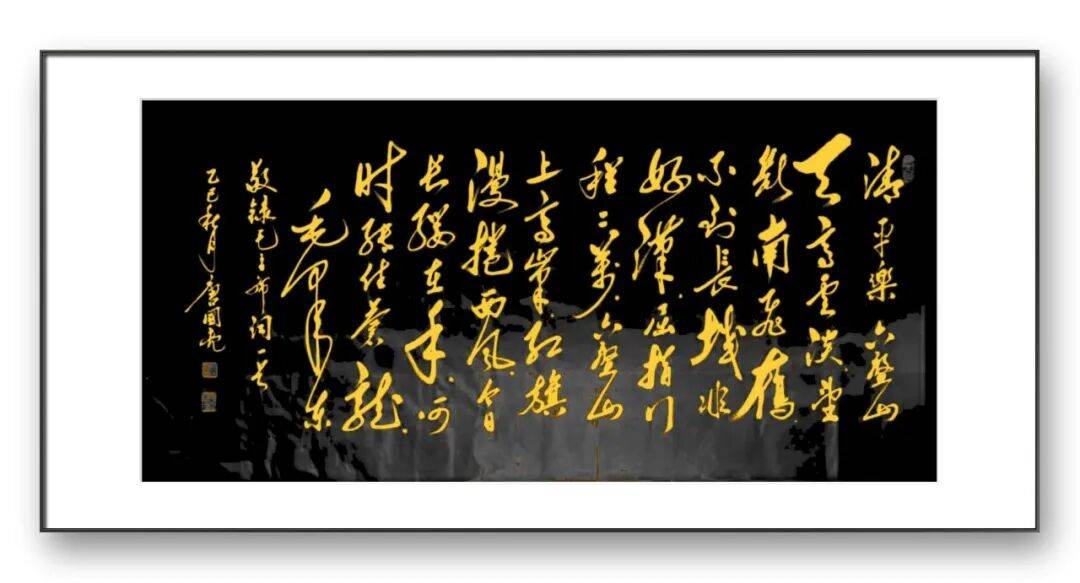 清平樂 六盤山
天高雲淡望
斷南飛雁
不到長城非
好漢屈指行
程二萬六盤山
上高峰红旗
漫捲西风今日
长缨在手何
时缚住蒼龍
毛泽东
敬錄毛主席词一首
乙巳秋月唐國亮